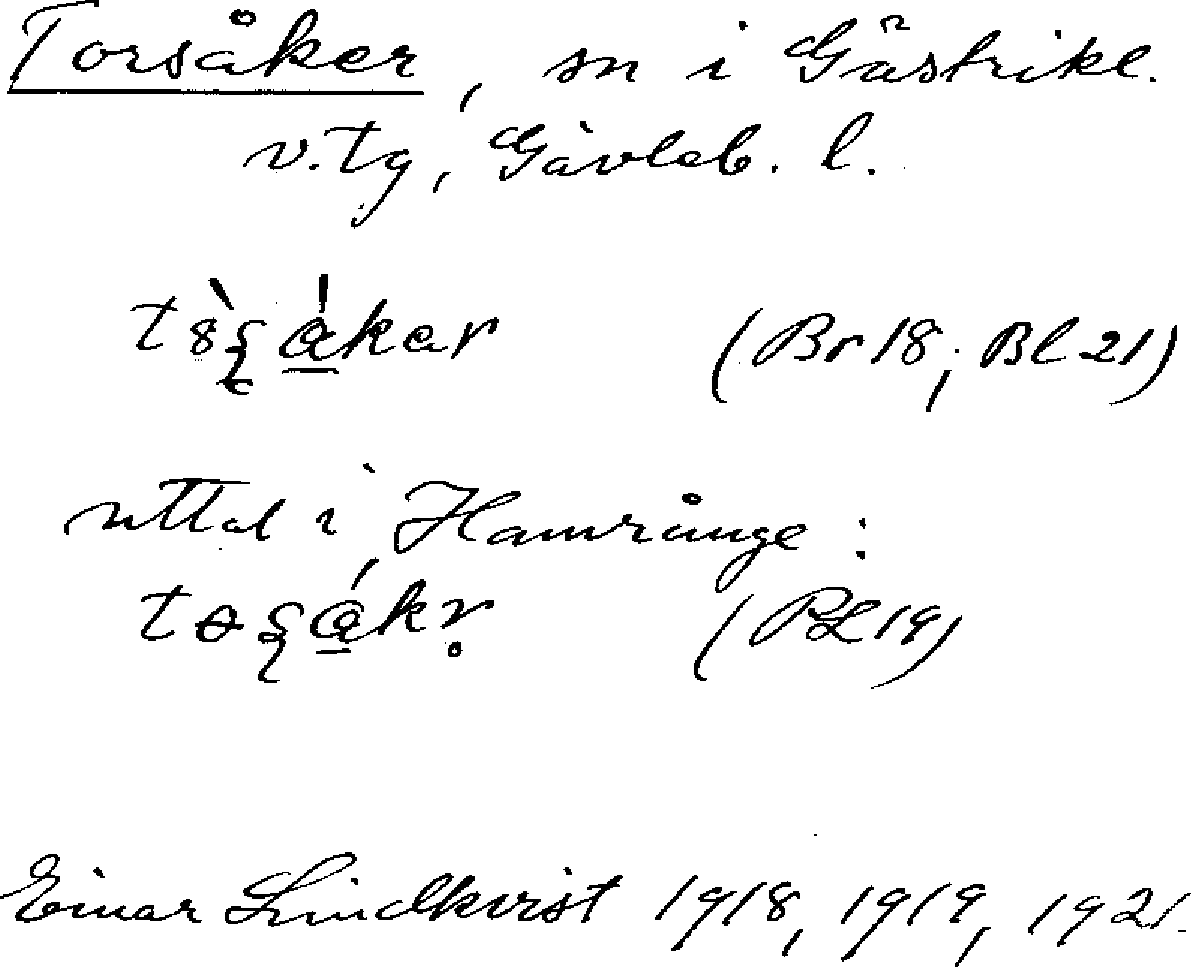 Torsåker, sn i Gästrikl.
v. tg, Gävleb. l.
(Br 18; Bl 21)
uttal i Hamrånge:
(PL 19)
Einar Lindkvist 1918, 1919, 1921.